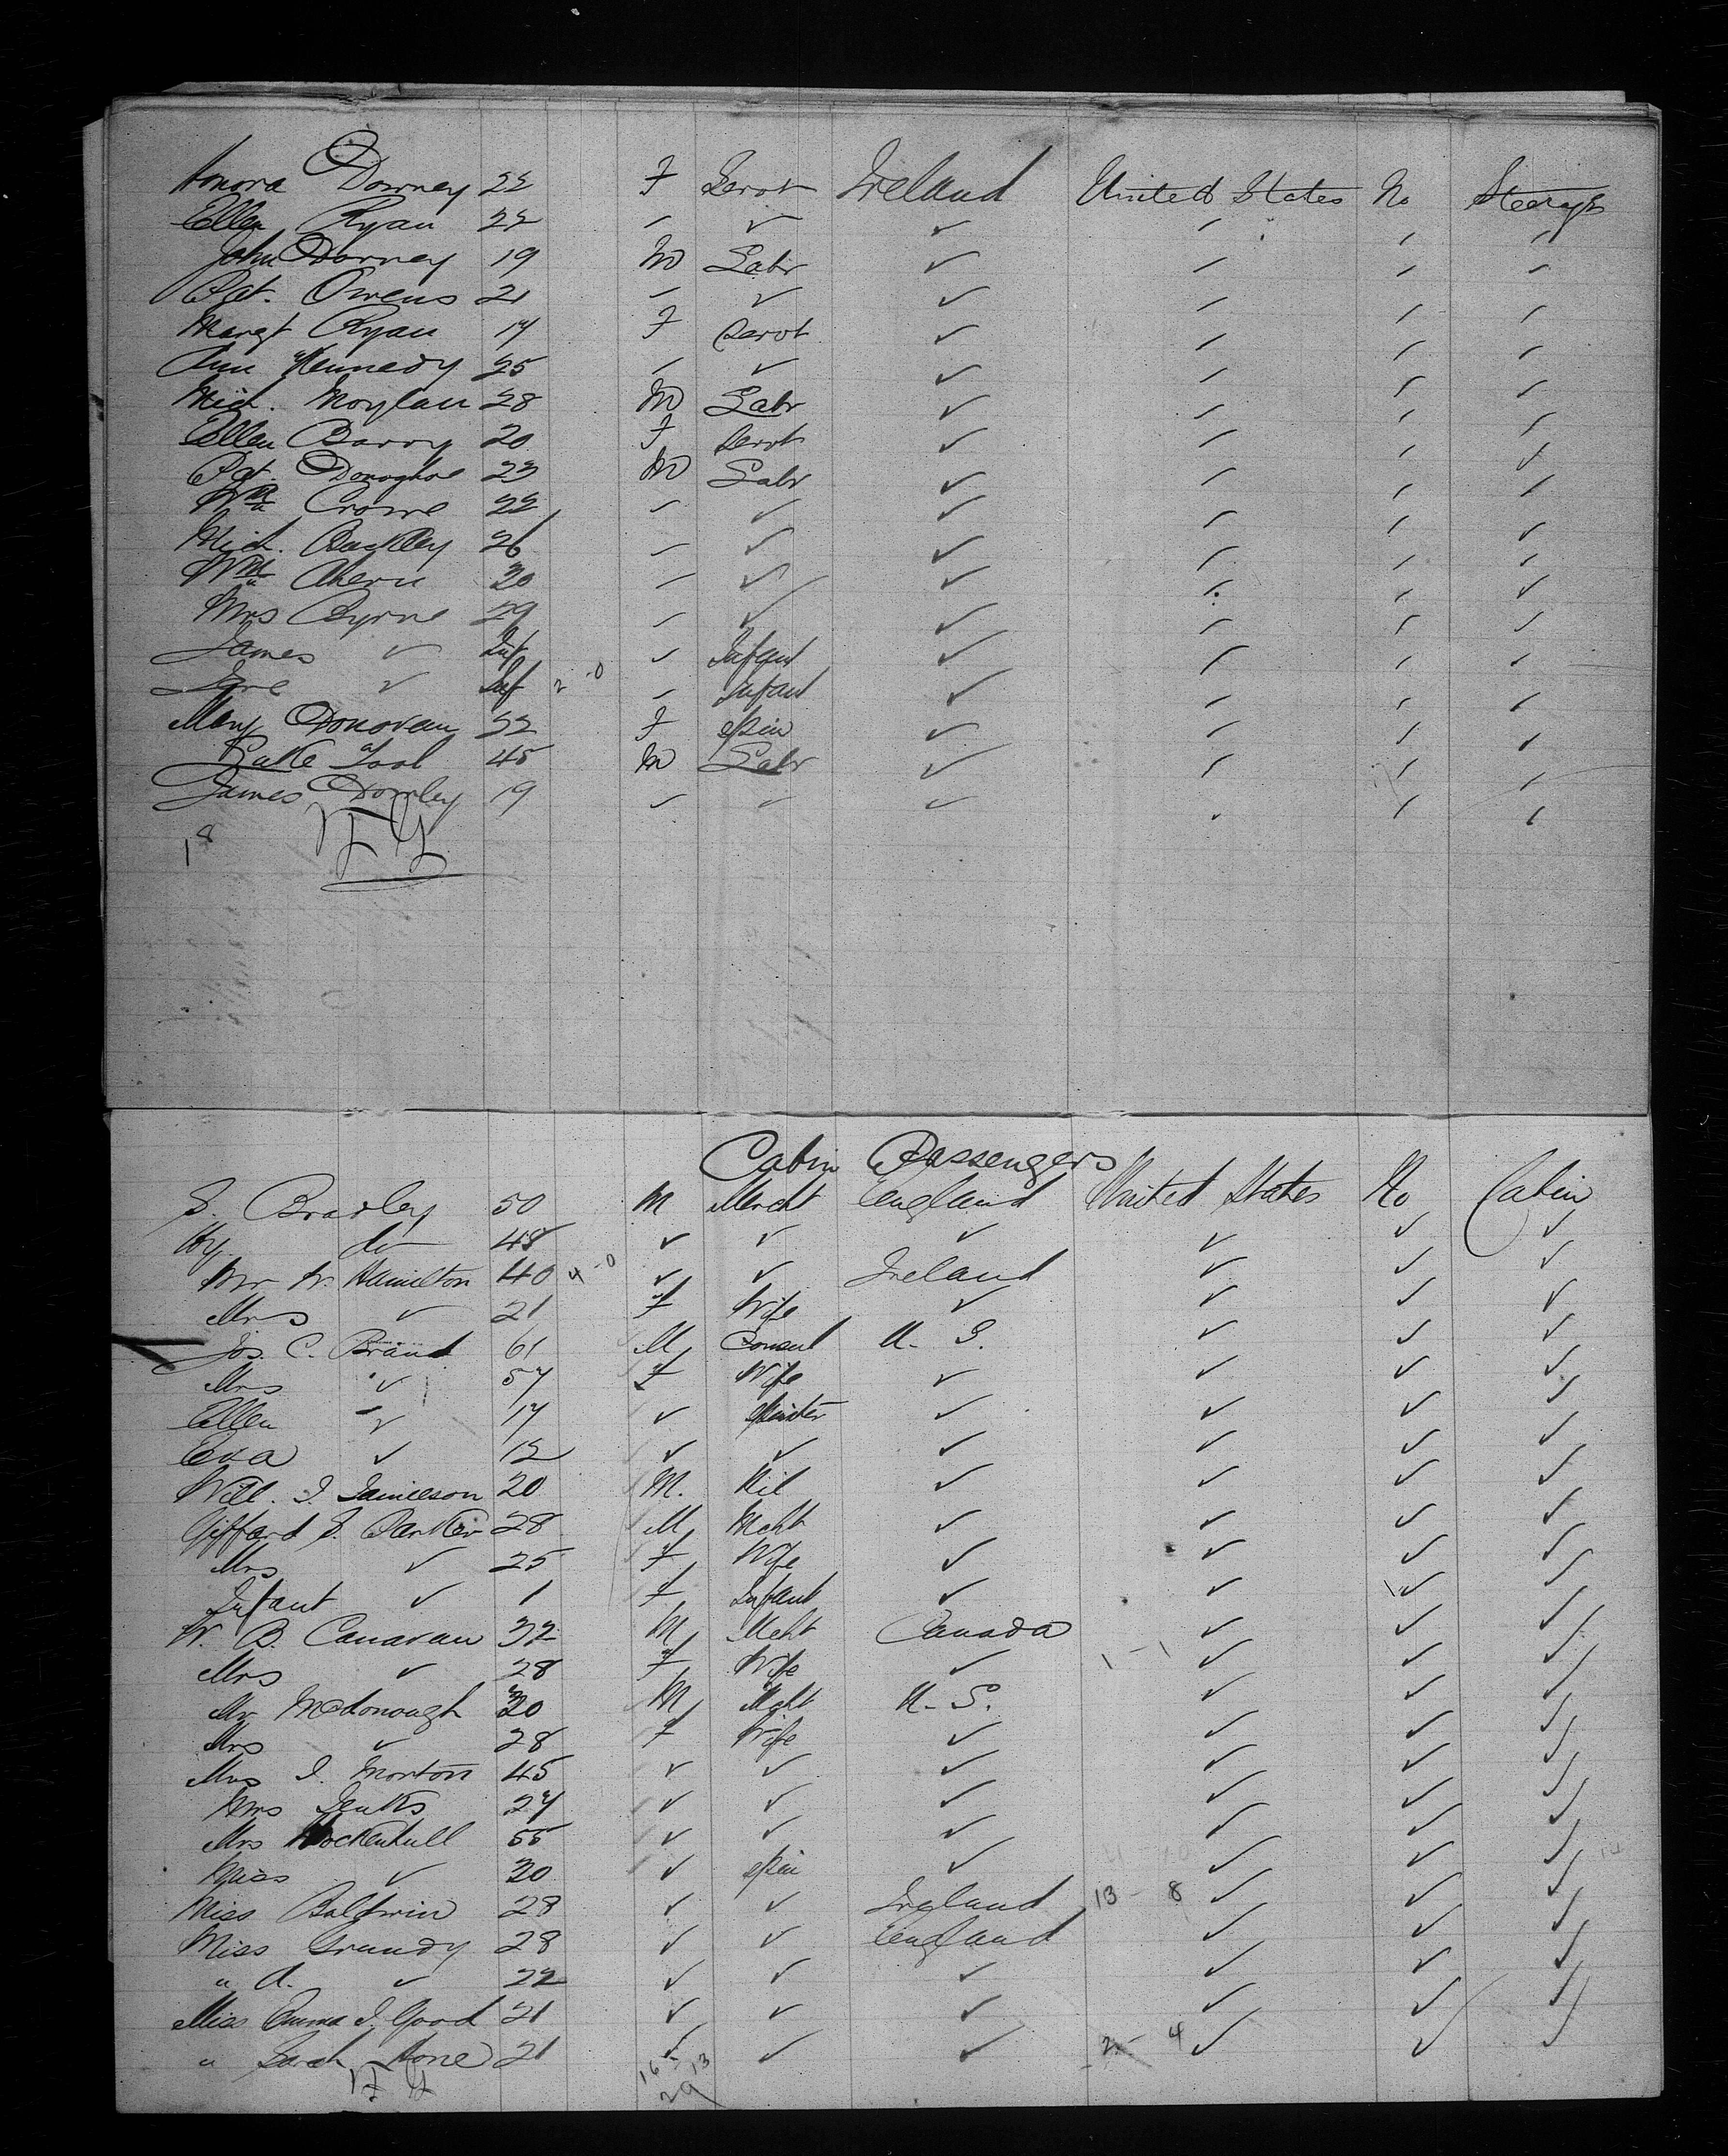 Honora Downey 22 F Servt Ireland United States No Steerage
Ellen Ryan 22 - ✓ ✓
John Downey 19 M Labr ✓
Pat. Owens 21 - ✓ ✓
Margt Ryan 17 F Servt ✓
Ann Kennedy 25 - ✓ ✓
Mich. Moylan 28 M Labr ✓
Ellen Barry 20 F Servt ✓
Pat. Donoghoe 23 M Labr ✓
Wm Crowe 22 - ✓ ✓
Mich. Buckley 26 - ✓ ✓
Wm Ahern 20 - ✓ ✓
Mrs Byrne 29 - ✓ ✓
James ✓ Inf ✓ Infant ✓
✓ Inf 2 - 0 - Infant ✓
Mary Donovan 22 F Spin ✓
Luke Tool 45 M Labr ✓
James Dowley 19 ✓ ✓ ✓
18
Cabin Passengers
S. Bradley 50 M Mercht England United States No Cabin
Hy. do 48 ✓ ✓ ✓ ✓ ✓ ✓
Mr W. Hamilton 40 4 - 0 ✓ ✓ Ireland ✓ ✓ ✓
Mrs ✓ 21 F Wife ✓ ✓ ✓ ✓
Jos. C. Brand 61 M Consul U. S. ✓ ✓ ✓
Mrs ✓ 57 F Wife ✓ ✓ ✓ ✓
Ellen ✓ 17 ✓ ✓ ✓ ✓ ✓
Eva ✓ 12 ✓ ✓ ✓ ✓ ✓ ✓
Will. J. Jamieson 20 M. Nil ✓ ✓ ✓ ✓
Gifford S. Parker 28 M Mcht ✓ ✓ ✓ ✓
Mrs ✓ 25 F Wife ✓ ✓ ✓ ✓
Infant ✓ 1 F Infant ✓ ✓ ✓ ✓
W. B. Canavan 32 M Mcht Canada ✓ ✓ ✓
Mrs ✓ 28 F Wife ✓ 1 - 1 ✓ ✓ ✓
Mr McDonough 30 M Mcht U. S. ✓ ✓ ✓
Mrs ✓ 28 F Wife ✓ ✓ ✓ ✓
Mrs J. Morton 45 ✓ ✓ ✓ ✓ ✓ ✓
Mrs Jenks 27 ✓ ✓ ✓ ✓ ✓ ✓
Mrs Hockenhull 55 ✓ ✓ ✓ ✓ ✓ ✓
Miss ✓ 30 ✓ Spin ✓ ✓ ✓ ✓
Miss Baldwin 28 ✓ ✓ Ireland 13 - 8 ✓ ✓ ✓
Miss Grundy 28 ✓ ✓ England ✓ ✓ ✓
" A. ✓ 22 ✓ ✓ ✓ ✓ ✓ ✓
Miss Emma J. Good 21 ✓ ✓ ✓ ✓ ✓ ✓
" Sarah Hone 21 ✓ ✓ ✓ 2 - 4 ✓ ✓ ✓
16 - 13
29